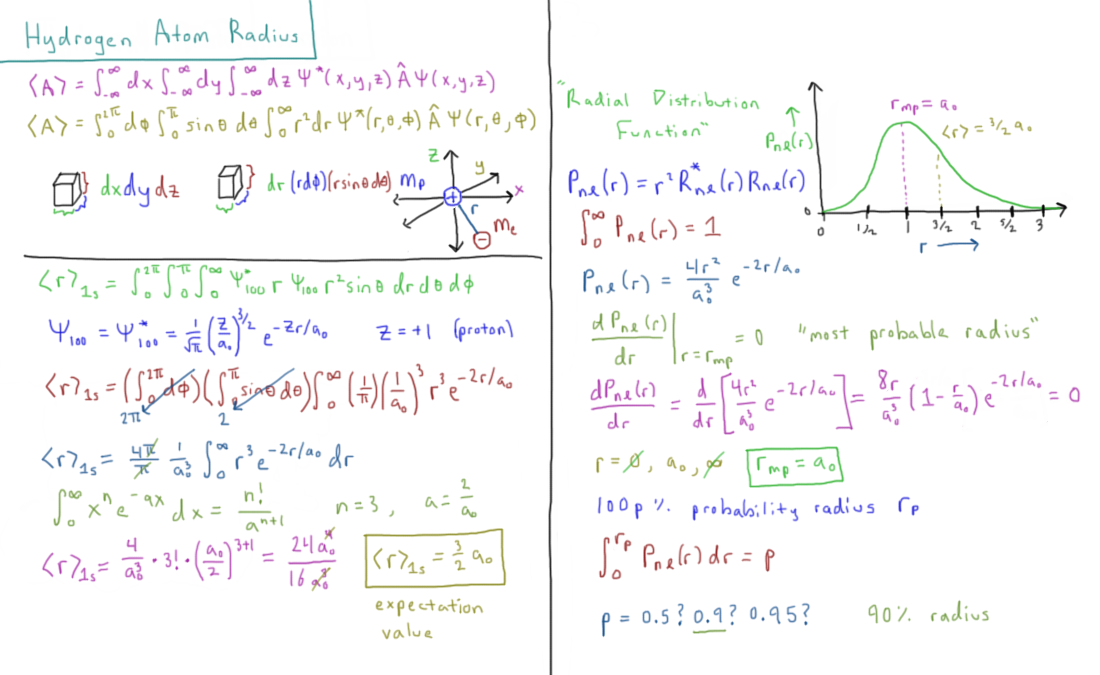 Hydrogen Atom Radius
⟨A⟩ = ∫_{-∞}^{∞} dx ∫_{-∞}^{∞} dy ∫_{-∞}^{∞} dz Ψ*(x,y,z) Â Ψ(x,y,z)
⟨A⟩ = ∫_0^{2π} dϕ ∫_0^π sinθ dθ ∫_0^∞ r² dr Ψ*(r,θ,ϕ) Â Ψ(r,θ,ϕ)
dxdydz
dr (rdϕ)(rsinθdθ)
z
y
x
m_p
+
r
m_e
−
⟨r⟩_{1s} = ∫_0^{2π} ∫_0^π ∫_0^∞ Ψ*_{100} r Ψ_{100} r² sinθ dr dθ dϕ
Ψ_{100} = Ψ*_{100} = 1/√π (Z/a₀)^{3/2} e^{-Zr/a₀} Z = +1 (proton)
⟨r⟩_{1s} = (∫_0^{2π} dϕ)(∫_0^π sinθ dθ) ∫_0^∞ (1/π)(1/a₀)³ r³ e^{-2r/a₀}
2π 2
⟨r⟩_{1s} = 4π/π 1/a₀³ ∫_0^∞ r³ e^{-2r/a₀} dr
∫_0^∞ xⁿ e^{-ax} dx = n!/a^{n+1} n=3, a = 2/a₀
⟨r⟩_{1s} = 4/a₀³ · 3! · (a₀/2)^{3+1} = 24 a₀⁴/16 a₀³
⟨r⟩_{1s} = 3/2 a₀
expectation
value
"Radial Distribution
Function"
P_{nℓ}(r)
r_{mp} = a₀
⟨r⟩ = 3/2 a₀
0
0 1/2 1 3/2 2 5/2 3
r ⟶
P_{nℓ}(r) = r² R*_{nℓ}(r) R_{nℓ}(r)
∫_0^∞ P_{nℓ}(r) = 1
P_{nℓ}(r) = 4r²/a₀³ e^{-2r/a₀}
dP_{nℓ}(r)/dr |_{r=r_{mp}} = 0 "most probable radius"
dP_{nℓ}(r)/dr = d/dr [4r²/a₀³ e^{-2r/a₀}] = 8r/a₀³ (1 - r/a₀) e^{-2r/a₀} = 0
r = 0, a₀, ∞ r_{mp} = a₀
100p % probability radius r_p
∫_0^{r_p} P_{nℓ}(r) dr = p
p = 0.5? 0.9? 0.95? 90% radius